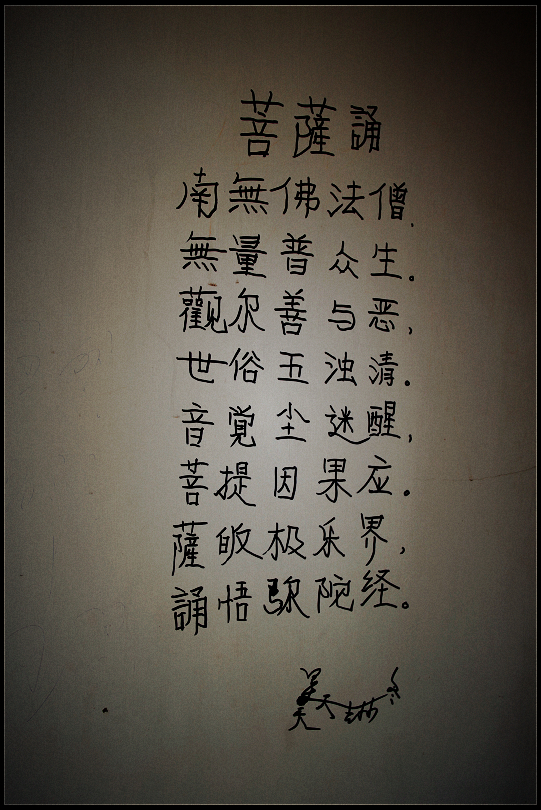 菩薩誦
南無佛法僧.
無量普众生。
觀尔善与恶,
世俗五浊清.
音覚尘迷醒,
菩提因果应.
薩皈极乐界,
誦悟弥陀经。